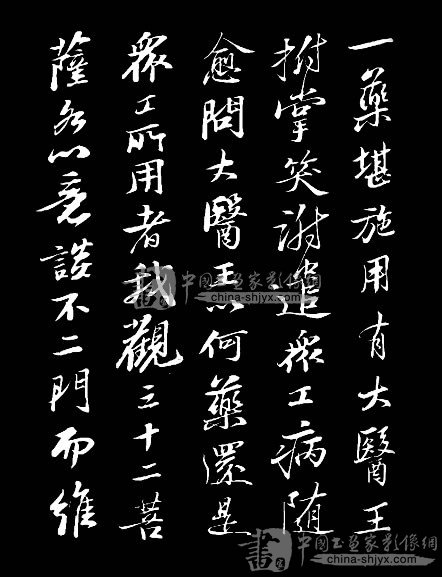 一藥堪施用有大醫王
拊掌笑謝遣衆工病随
愈問大醫王以何藥還是
衆工所用者我觀三十二菩
薩各以意談不二門而維
書 中國书畫家影像網
china-shjyx.com
書 中國书畫家影像網
china-shjyx.com